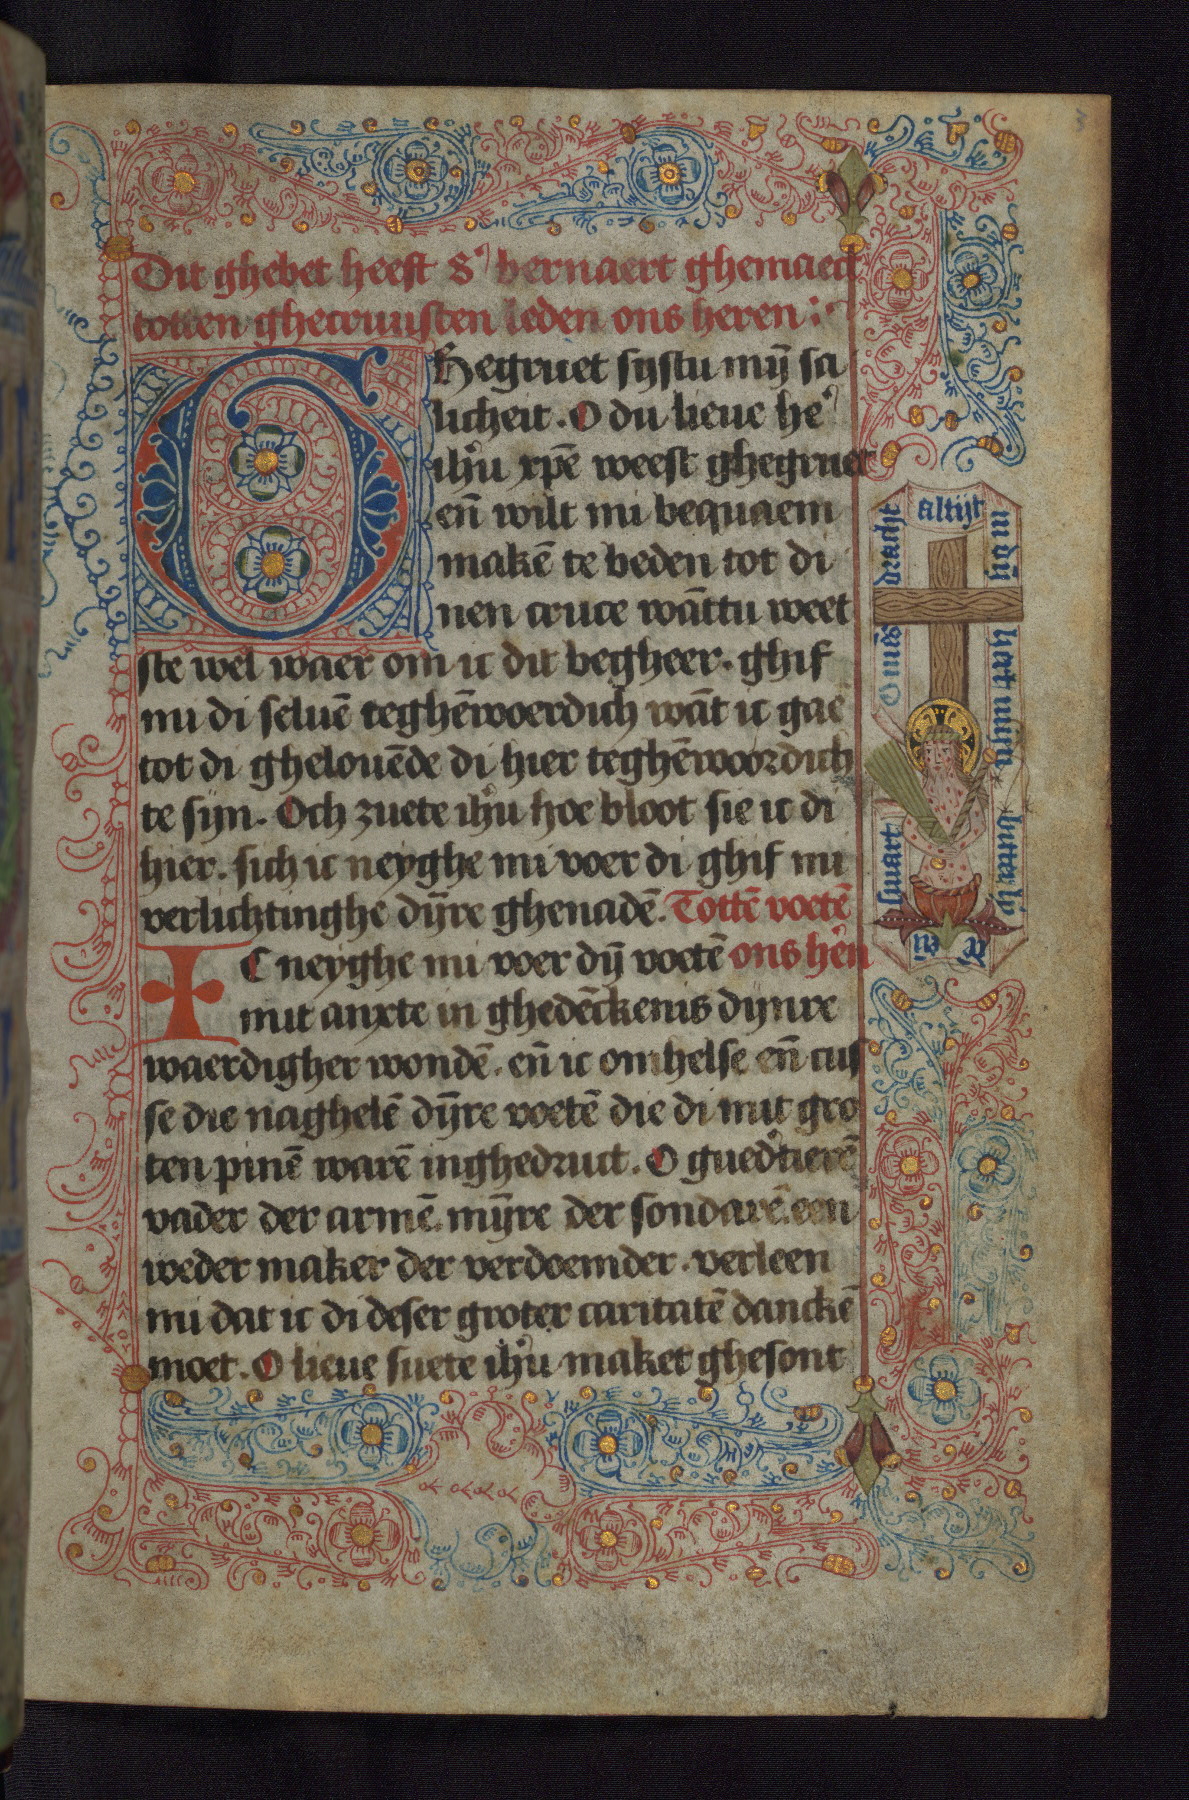 Dit ghebet heeft s' bernaert ghemaect
totten ghecruusten leden ons heren :
GHegruet systu mӯ sa
licheit. O du lieue he'
ihu xpē weest ghegruet
eñ wilt mi bequaem
makē te beden tot di
nen cruce wāttu weet
ste wel waer om ic dit begheer. ghif
mi di seluē teghēwoerdich wāt ic gae
tot di ghelouēde di hier teghēwoordich
te sijn. Och zuete ihu hoe bloot sie ic di
hier. sich ic neyghe mi voer di ghif mi
verlichtinghe dӯre ghenadē. Tottē voetē
IC neyghe mi voer dӯ voetē ons hēn
mit anxte in ghedēckenis dijnre
waerdigher wondē. eñ ic omhelse eñ cus
se die naghelē dӯre voetē die di mit gro
ten pinē warē inghedruct. O guedtierē
vader der armē. mӯre der sondarē. een
weder maker der verdoemder. verleen
mi dat ic di deser groter caritatē danckē
moet. O lieue suete ihu maket ghesont
O mēs dracht
altijt
in dijn hert mijn
bitter lij
swaert
3